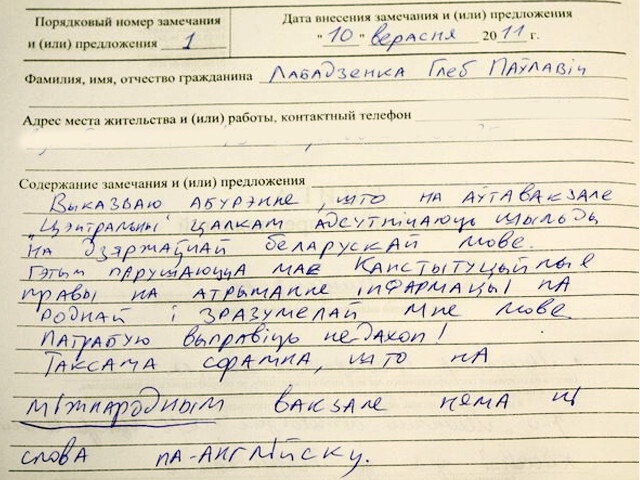 Порядковый номер замечания
и (или) предложения 1
Дата внесения замечания и (или) предложения
"10" верасня 2011 г.
Фамилия, имя, отчество гражданина Лабадзенка Глеб Паўлавіч
Адрес места жительства и (или) работы, контактный телефон
Содержание замечания и (или) предложения
Выказваю абурэнне, што на аўтавакзале
"Цэнтральны" цалкам адсутнічаюць шыльды
на дзяржаўнай беларускай мове.
Гэтым парушаюцца мае Канстытуцыйныя
правы на атрыманне інфармацыі на
роднай і зразумелай мне мове
Патрабую выправіць недахоп!
Таксама сорамна, што на
міжнародным вакзале няма ні
слова па-англійску.